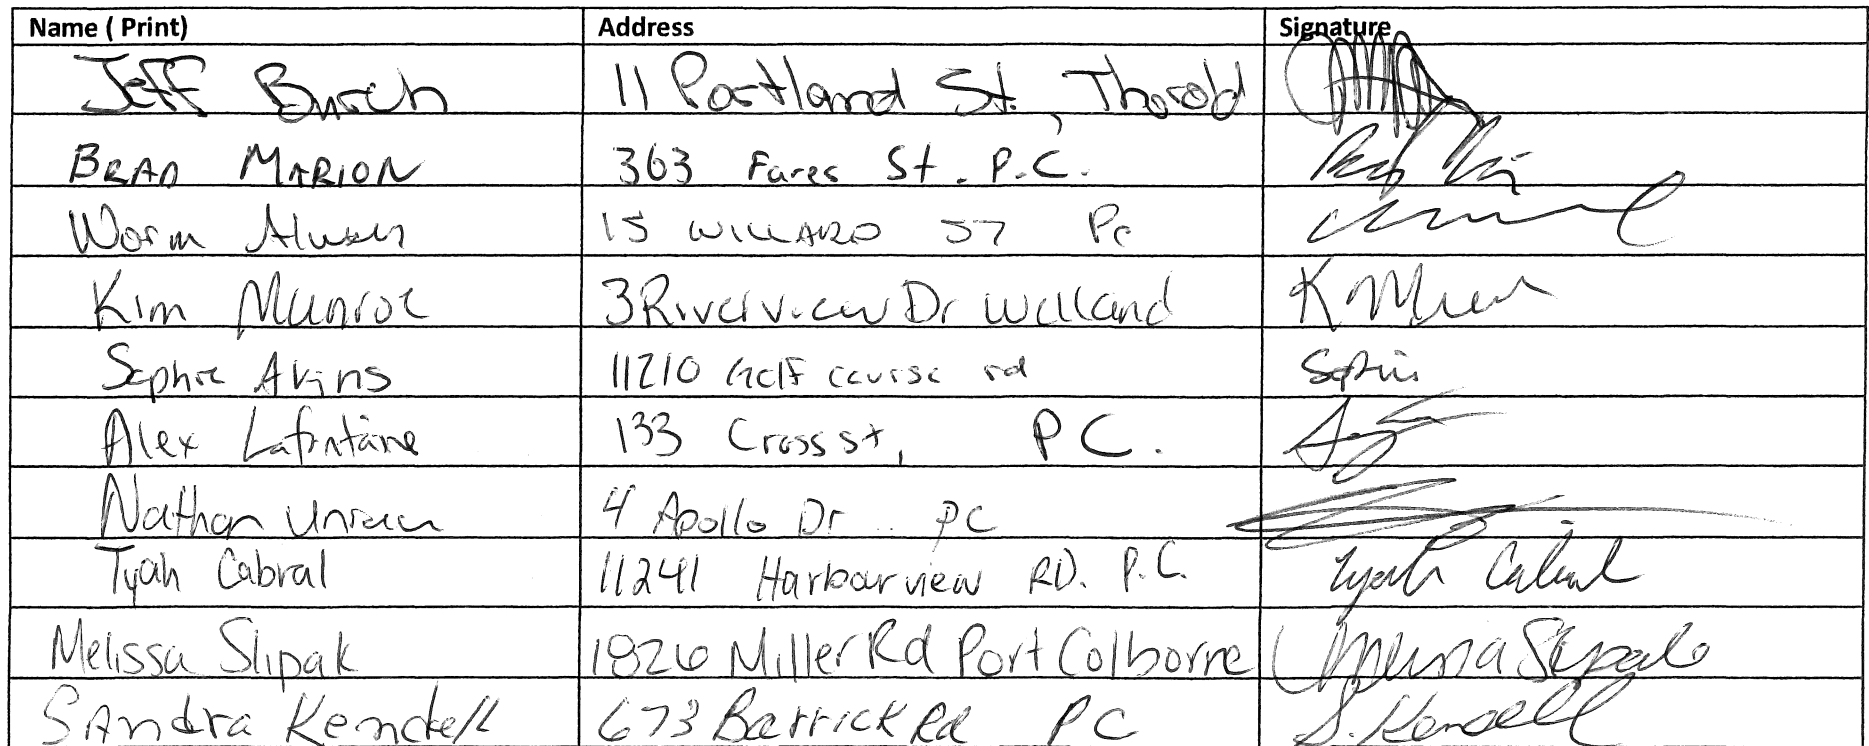 Name ( Print) Address Signature
Jeff Burch 11 Portland St., Thorold
BRAD MARION 363 Fares St. P.C.
Worm 15 WILLARD ST PC
Kim Munroe 3 Riverview Dr Welland K
Sophie Akins 11210 Golf course rd Sophie
Alex Lafontaine 133 Cross st, PC.
Nathan Unrau 4 Apollo Dr.. PC
Tyah Cabral 11241 Harbourview RD. P.C. Tyah Cabral
Melissa Slipak 1826 Miller Rd Port Colborne Melissa Slipak
SANdra Kendell 673 Barrick Rd PC S. Kendell